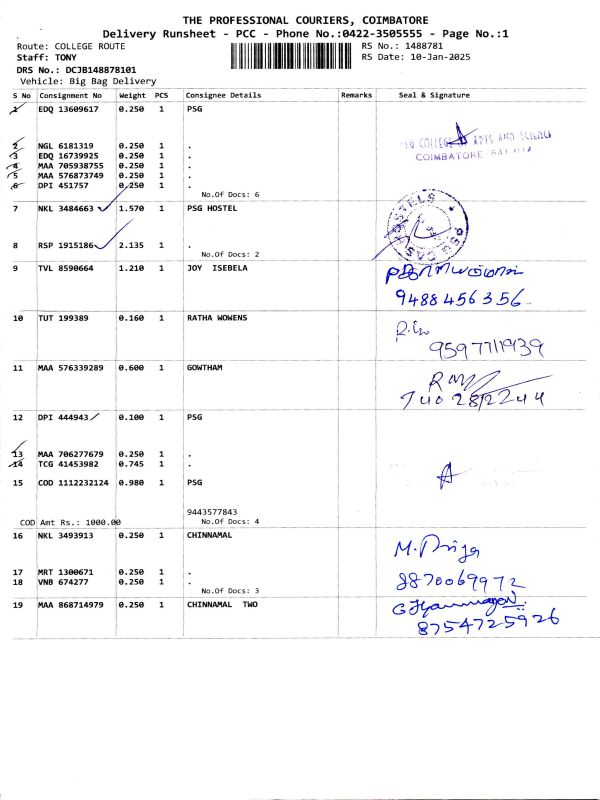 THE PROFESSIONAL COURIERS, COIMBATORE
Delivery Runsheet - PCC - Phone No.:0422-3505555 - Page No.:1
Route: COLLEGE ROUTE RS No.: 1488781
Staff: TONY RS Date: 10-Jan-2025
DRS No.: DCJB148878101
Vehicle: Big Bag Delivery
S No Consignment No Weight PCS Consignee Details Remarks Seal & Signature
1 EDQ 13609617 0.250 1 PSG
COLLEGE ARTS AND SCIENCE
COIMBATORE
2 NGL 6181319 0.250 1 .
3 EDQ 16739925 0.250 1 .
4 MAA 705938755 0.250 1 .
5 MAA 576873749 0.250 1 .
6 DPI 451757 0.250 1 .
No.Of Docs: 6
7 NKL 3484663 1.570 1 PSG HOSTEL
8 RSP 1915186 2.135 1 .
No.Of Docs: 2
9 TVL 8590664 1.210 1 JOY ISEBELA
9488456356
10 TUT 199389 0.160 1 RATHA WOWENS
9597711939
11 MAA 576339289 0.600 1 GOWTHAM
7402812244
12 DPI 444943 0.100 1 PSG
13 MAA 706277679 0.250 1 .
14 TCG 41453982 0.745 1 .
15 COD 1112232124 0.980 1 PSG
9443577843
COD Amt Rs.: 1000.00 No.Of Docs: 4
16 NKL 3493913 0.250 1 CHINNAMAL
M. Priya
17 MRT 1300671 0.250 1 .
18 VNB 674277 0.250 1 .
8870069972
No.Of Docs: 3
19 MAA 868714979 0.250 1 CHINNAMAL TWO
8754725926